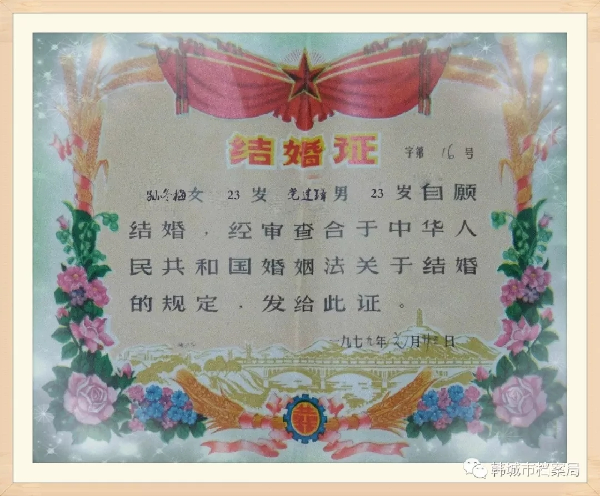 结婚证
字第 16 号
孙冬梅 女 23 岁 党建 男 23 岁自愿
结婚，经审查合于中华人
民共和国婚姻法关于结婚
的规定，发给此证。
一九七九年 月 日
韩城市档案局